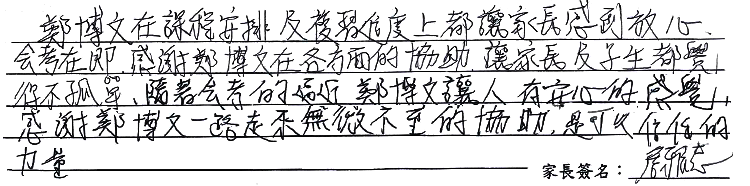 鄭博文在課程安排及複習進度上都讓家長感到放心、
會考在即感謝鄭博文在各方面的協助讓家長及學生都覺
得不孤單,隨著會考的接近鄭博文讓人有安心的感覺,
感謝鄭博文一路走來無微不至的協助,是可以信任的
力量
家長簽名: